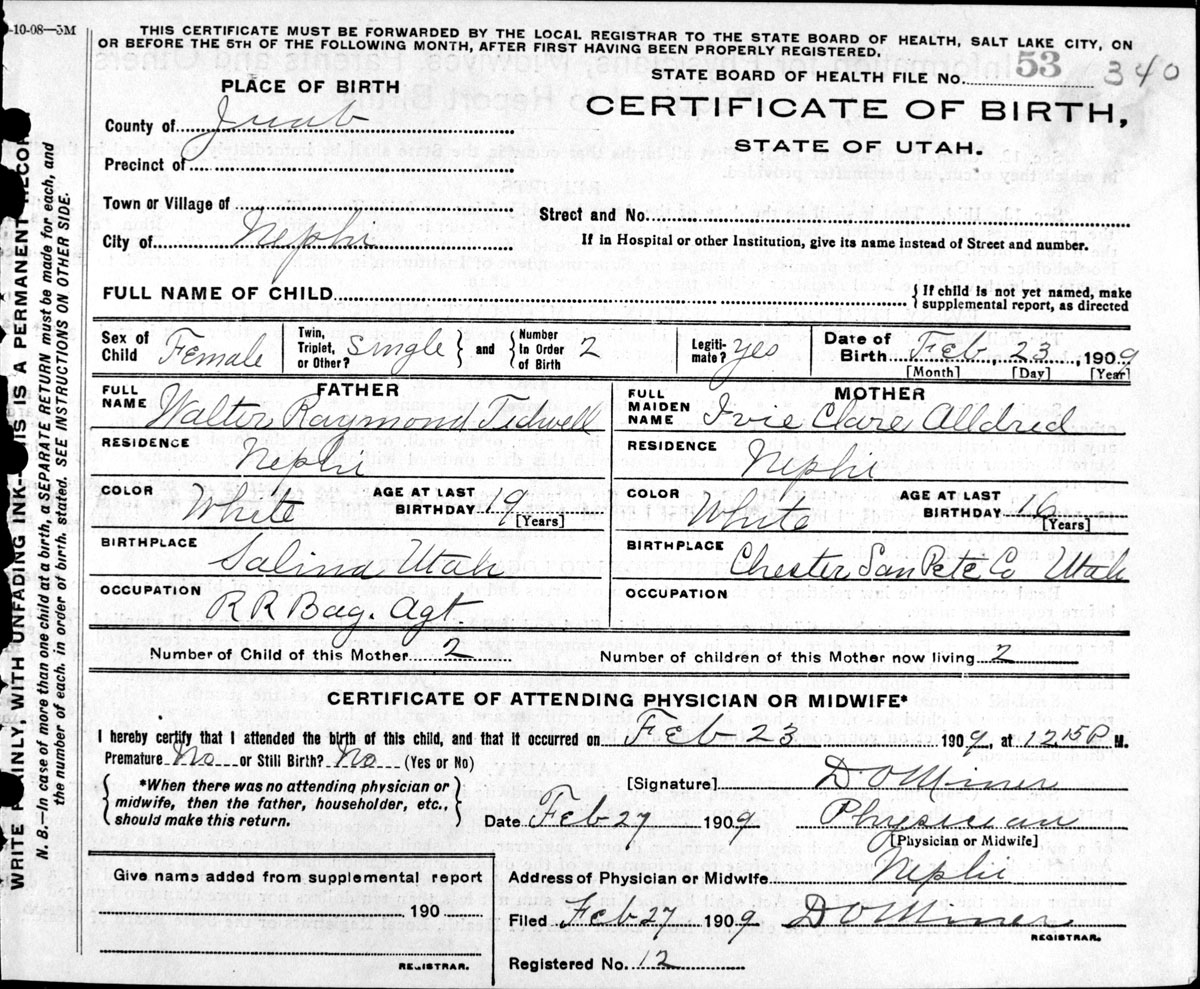 -10-08—3M
THIS CERTIFICATE MUST BE FORWARDED BY THE LOCAL REGISTRAR TO THE STATE BOARD OF HEALTH, SALT LAKE CITY, ON
OR BEFORE THE 5TH OF THE FOLLOWING MONTH, AFTER FIRST HAVING BEEN PROPERLY REGISTERED.
STATE BOARD OF HEALTH FILE No. 53 340
PLACE OF BIRTH
CERTIFICATE OF BIRTH,
STATE OF UTAH.
County of Juab
Precinct of
Town or Village of
Street and No.
City of Nephi
If in Hospital or other Institution, give its name instead of Street and number.
FULL NAME OF CHILD
{ If child is not yet named, make
supplemental report, as directed
Sex of Child Female
Twin, Triplet, or Other? Single } and { Number In Order of Birth 2
Legiti-mate? yes
Date of Birth Feb, 23, 1909
[Month] [Day] [Year]
FATHER
FULL NAME Walter Raymond Tidwell
MOTHER
FULL MAIDEN NAME Ivie Clare Alldred
RESIDENCE Nephi
RESIDENCE Nephi
COLOR White AGE AT LAST BIRTHDAY 19 [Years]
COLOR White AGE AT LAST BIRTHDAY 16 [Years]
BIRTHPLACE Salina Utah
BIRTHPLACE Chester San Pete Co Utah
OCCUPATION R R Bag. Agt.
OCCUPATION
Number of Child of this Mother 2
Number of children of this Mother now living 2
CERTIFICATE OF ATTENDING PHYSICIAN OR MIDWIFE*
I hereby certify that I attended the birth of this child, and that it occurred on Feb 23 1909, at 12.15 P M.
Premature No or Still Birth? No (Yes or No)
{ *When there was no attending physician or
midwife, then the father, householder, etc.,
should make this return. }
[Signature] D O Miner
Date Feb 27 1909 Physician
[Physician or Midwife]
Give name added from supplemental report
190
REGISTRAR.
Address of Physician or Midwife Nephi
Filed Feb 27 1909 D O Miner
REGISTRAR.
Registered No. 12
WRITE PLAINLY, WITH UNFADING INK—THIS IS A PERMANENT RECOR
N. B.—In case of more than one child at a birth, a SEPARATE RETURN must be made for each, and
the number of each, in order of birth, stated. SEE INSTRUCTIONS ON OTHER SIDE.